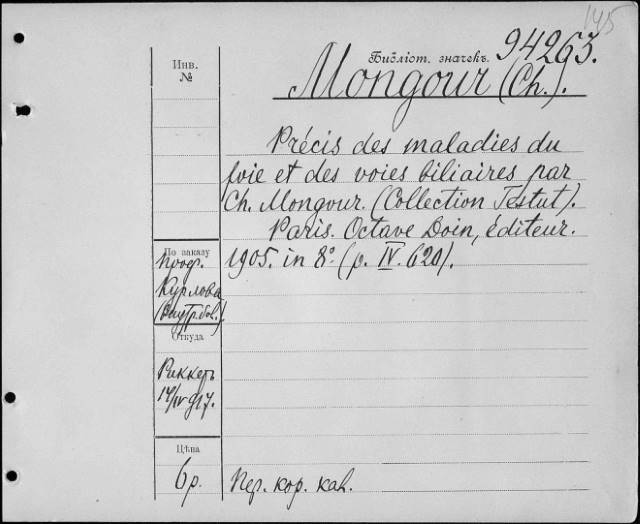 145
Инв.
№
Библіот. значекъ. 94263.
Mongour (Ch.).
Précis des maladies du
foie et des voies biliaires par
Ch. Mongour. (Collection Testut).
Paris. Octave Doin, éditeur.
1905. in 8° (p. IV. 620).
По заказу
Проф.
Курлова
(Внутр. бол.)
Откуда
Риккеръ
14/IV 917.
Цѣна
6 р.
Пер. кор. кал.